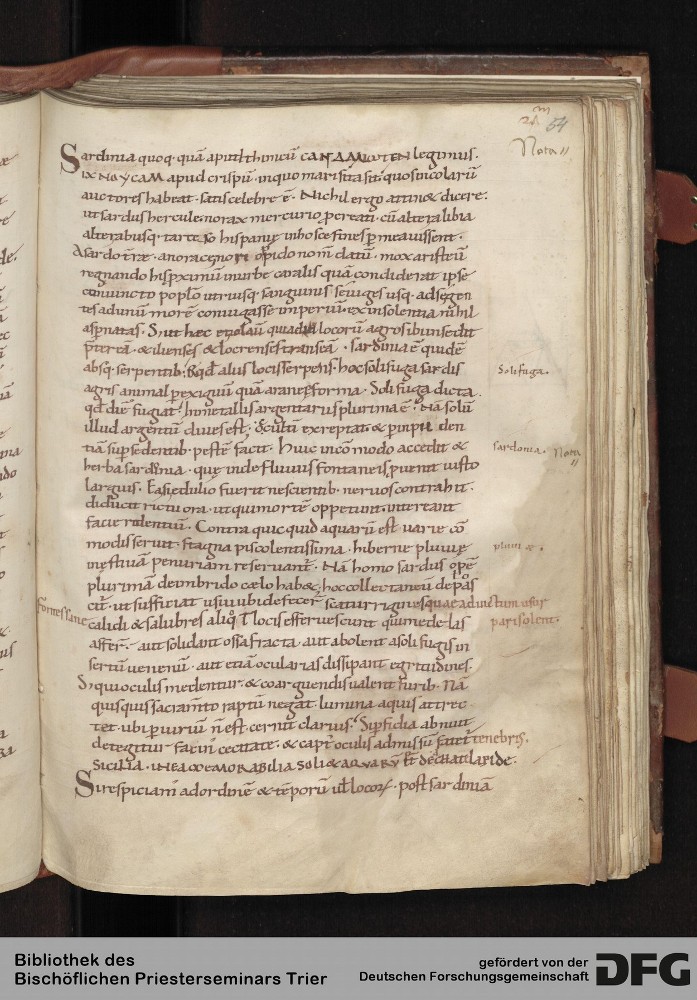 54
Nota
Sardinia quoq· quā apud thimeū CANΔAΛIωTEN legimus·
IXNOYCAM apud crispū· in quo mari sita sit· quos incolarū
auctores habeat· satis celebre ē· Nichil ergo attin& dicere:
ut sardus hercule· norax mercurio pcreati· cū alter a libia
alter ab usq· tartesso hispanie in hosce fines pmeauissent·
A sardo træ· a norace nori oppido nom̄ datū· mox aristeū
regnando his pximū in urbe caralis quā condiderat ipse
coniuncto poplo utriusq· sanguinis
tes ad unū morē coniugasse imperiū· ex insolentia nihil
aspnatas· S; ut hæc locorū agros ibunsedit
ptereā· & ilienses & locrenses transeā· sardinia ē quidē
absq· serpentib; sȝ qd aliis locis serpens· hoc solifuga sardis
agris animal pexiguū quā aranee forma· Solifuga dicta
qd diē fugiat· In metallis argentariis plurima ē· Nā solū
illud argentū diues est· occultī exreptat· & p inpru den
tiā supsedentib· pestē facit· Huic incōmodo accedit &
herba sardonia· quę inde fluuiis fontaneis puenit iusto
largius· Ea si edulio fuerit nescientib· neruos contrahit·
diducit rictu ora· ut qui mortē oppetunt· intereant
facie ridentiū· Contra quicquid aquarū est uarie cō
modis seruit· stagna piscolentissima· hiberne pluuię
in ęstiuā penuriam reseruant· Nā homo sardus opē
plurimā de imbrido cælo hab&· hoc collectaneū depas
cit· ut sufficiat usui ubi defecer scaturrigines quae ad inctum usur
Fontes sane calidi & salubres aliq̊t locis efferuescunt qui medelas pari solent·
affer̄· aut solidant ossa fracta· aut abolent a solifugis in
sertū uenenū· aut etiā ocularias dissipant egritudines·
S; qui oculis medentur· & coarguendis ualent furib· Nā
quisquis sacramto raptū negat· lumina aquis attrec
tet· ubi piurium n̄ est· cernit clarius· Si pfidia abnuit
detegitur facin cecitate· & capt oculis admissū fatet tenebris·
SICILIA· IN EA MEMORABILIA SOLI & AQUARŪ
Si respiciam ad ordinē & tēporū ut locor· post sardiniā
Solifuga·
sardonia· Nota
pluuiæ·
Bibliothek des
Bischöflichen Priesterseminars Trier
gefördert von der
Deutschen Forschungsgemeinschaft
DFG